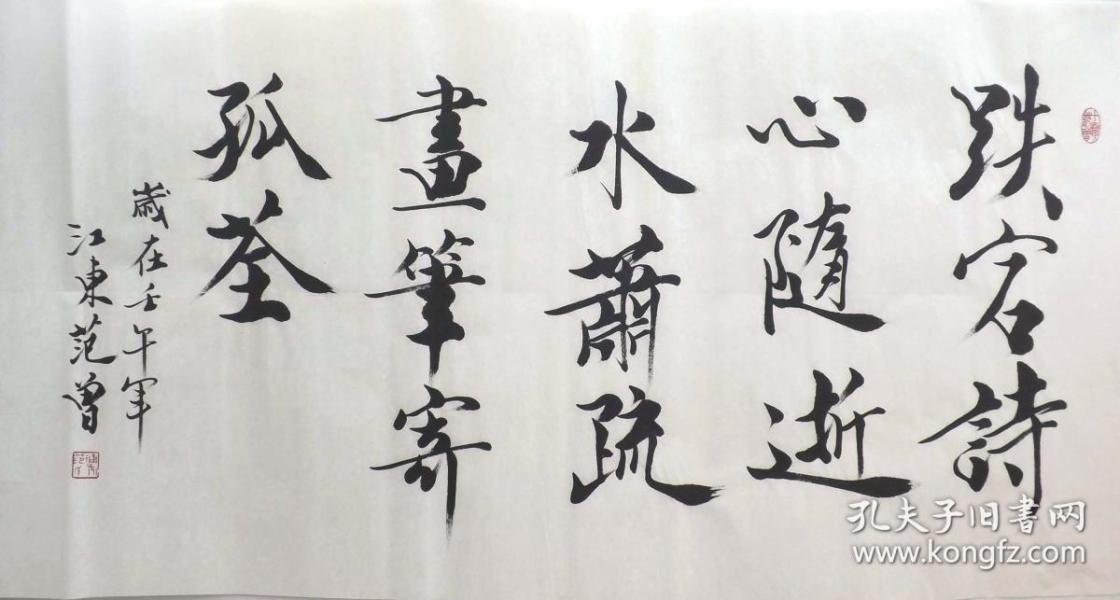 跌宕詩
心隨逝
水蕭疏
畫筆寄
孤荃
歲在壬午年
江東范曾
孔夫子旧書网
www.kongfz.com